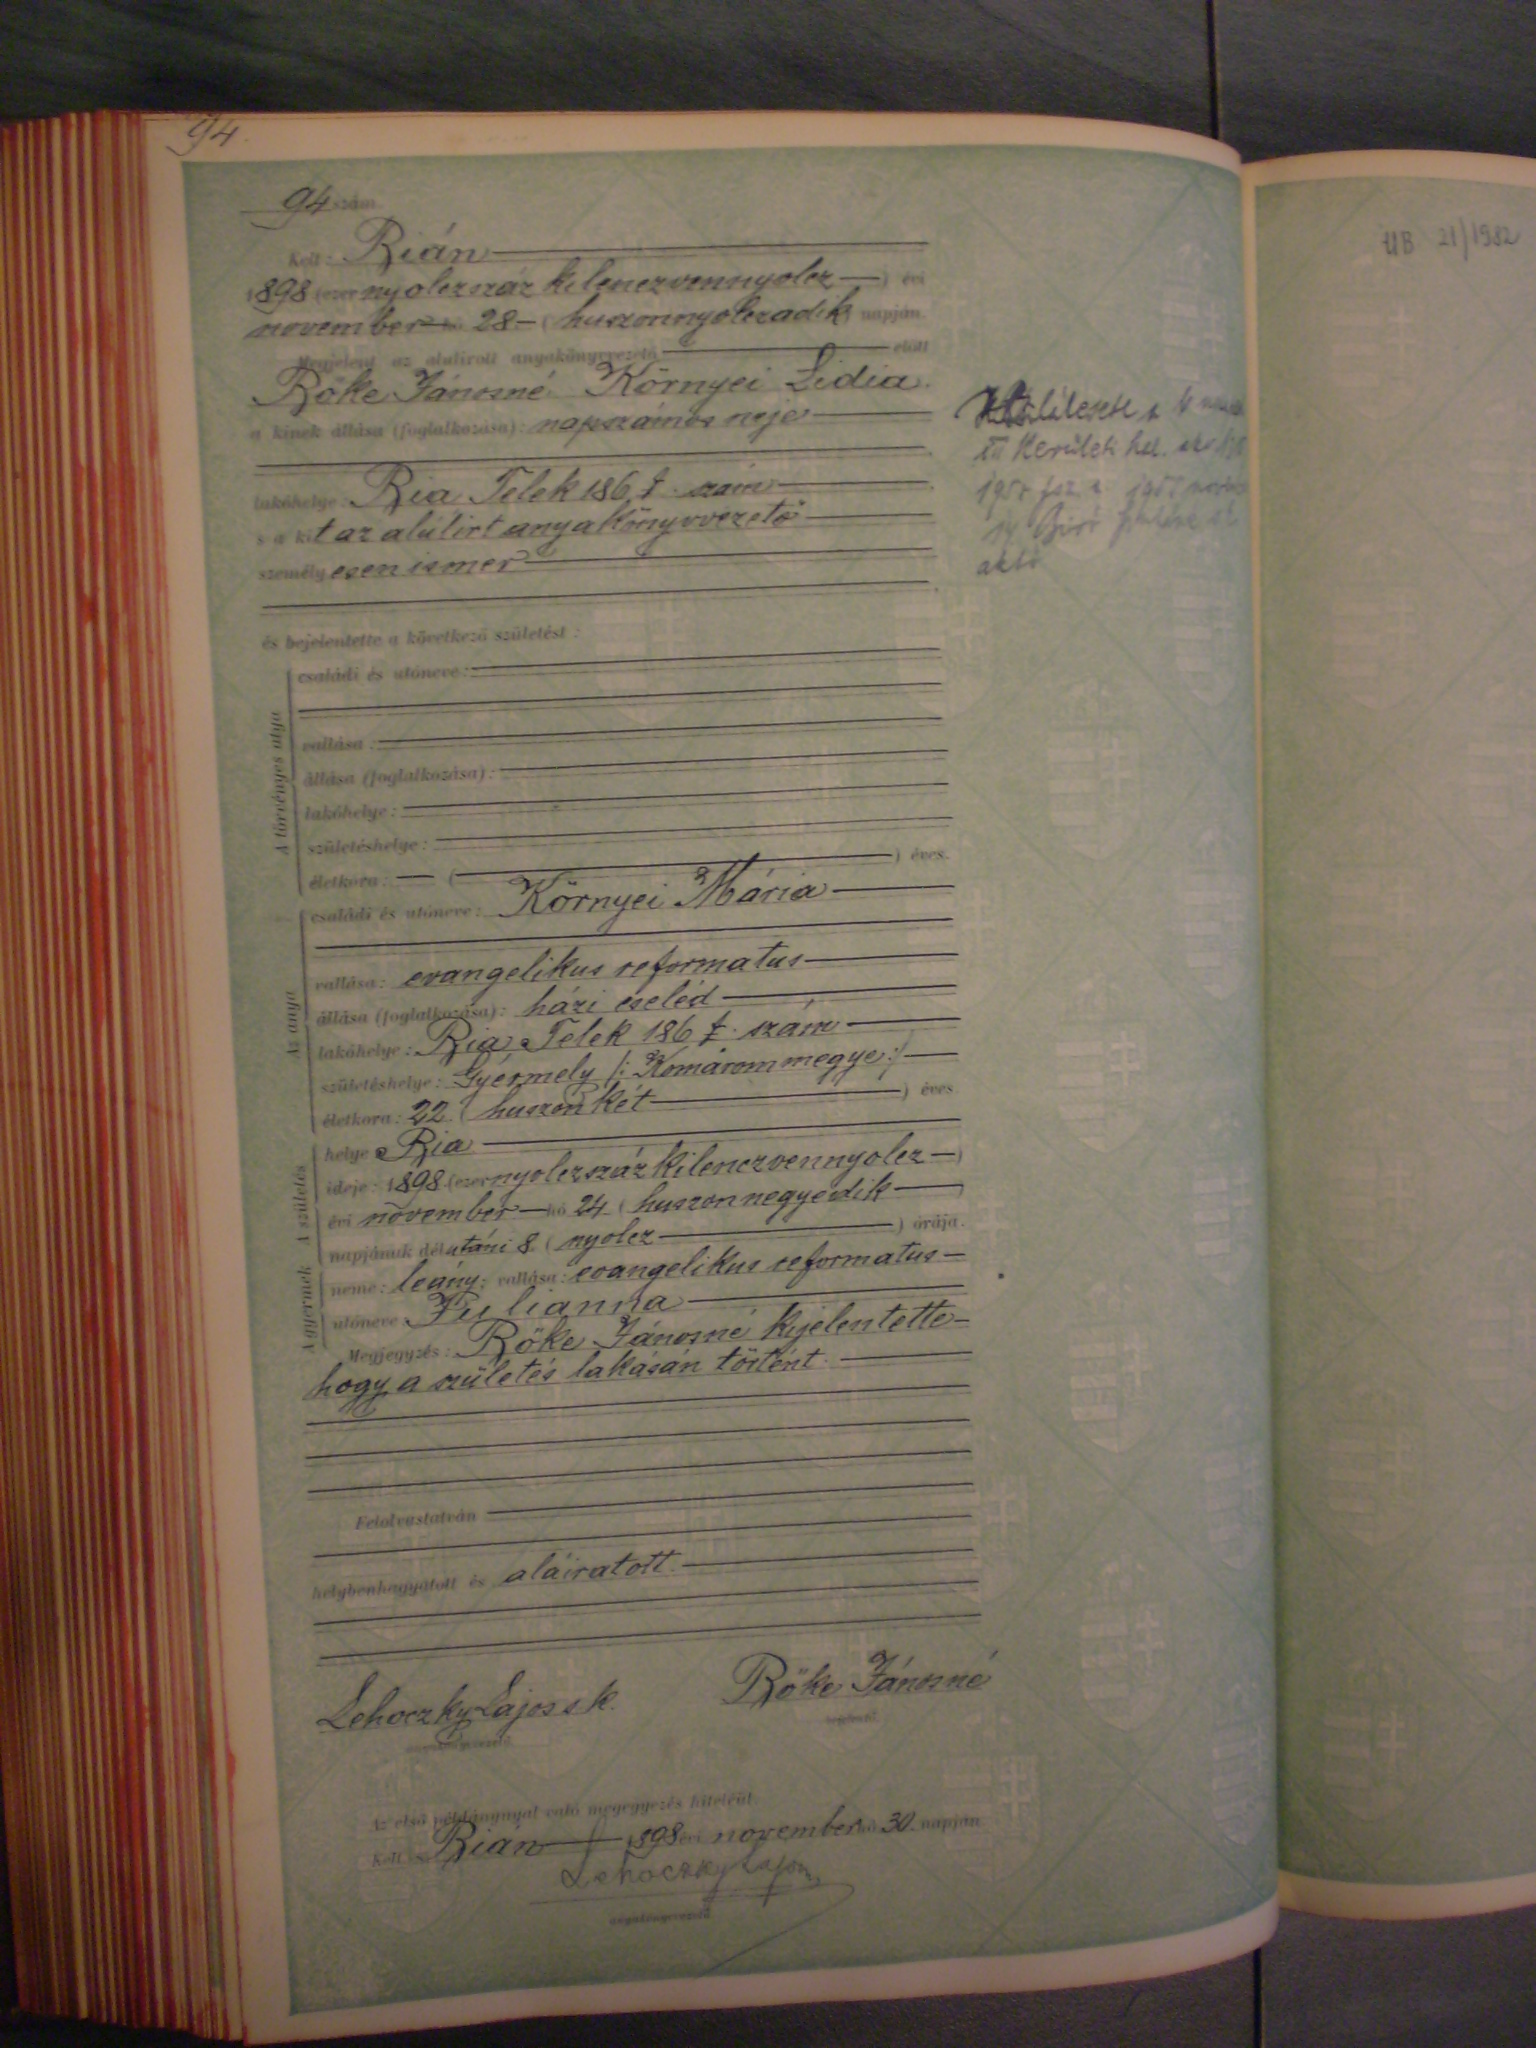 94
94 szám
Kelt: Rián
1898 (ezer nyolczszáz kilenczvennyolcz) évi
november hó 28 (huszonnyolczadik) napján.
Megjelent az alulirott anyakönyvvezető előtt
Rőke Jánosné Környei Lidia
a kinek állása (foglalkozása): napszámos neje
lakóhelye: Ria Telek 186 f. szám
s a kit az alulirt anyakönyvvezető
személyesen ismer
és bejelentette a következő születést:
A törvényes atya
családi és utóneve:
vallása:
állása (foglalkozása):
lakóhelye:
születéshelye:
életkora: ( ) éves.
Az anya
családi és utóneve: Környei Mária
vallása: evangelikus reformatus
állása (foglalkozása): házi cseléd
lakóhelye: Ria Telek 186 f. szám
születéshelye: Gyérmely /: Komárommegye :/
életkora: 22 (huszonkét) éves.
A születés
helye: Ria
ideje: 1898 (ezer nyolczszáz kilenczvennyolcz)
évi november hó 24 (huszonnegyedik)
napjának délutáni 8 (nyolcz) órája.
A gyermek
neme: leány; vallása: evangelikus reformatus
utóneve: Julianna
Megjegyzés: Rőke Jánosné kijelentette
hogy a születés lakásán történt.
Felolvastatván
helybenhagyatott és aláiratott.
Lehoczky Lajos s k. Rőke Jánosné
anyakönyvvezető bejelentő
Az első példánynyal való megegyezés hiteléül.
Kelt Rián 1898 évi november hó 30. napján
Lehoczky Lajos
anyakönyvvezető
III Kerületi
UB 21/1982